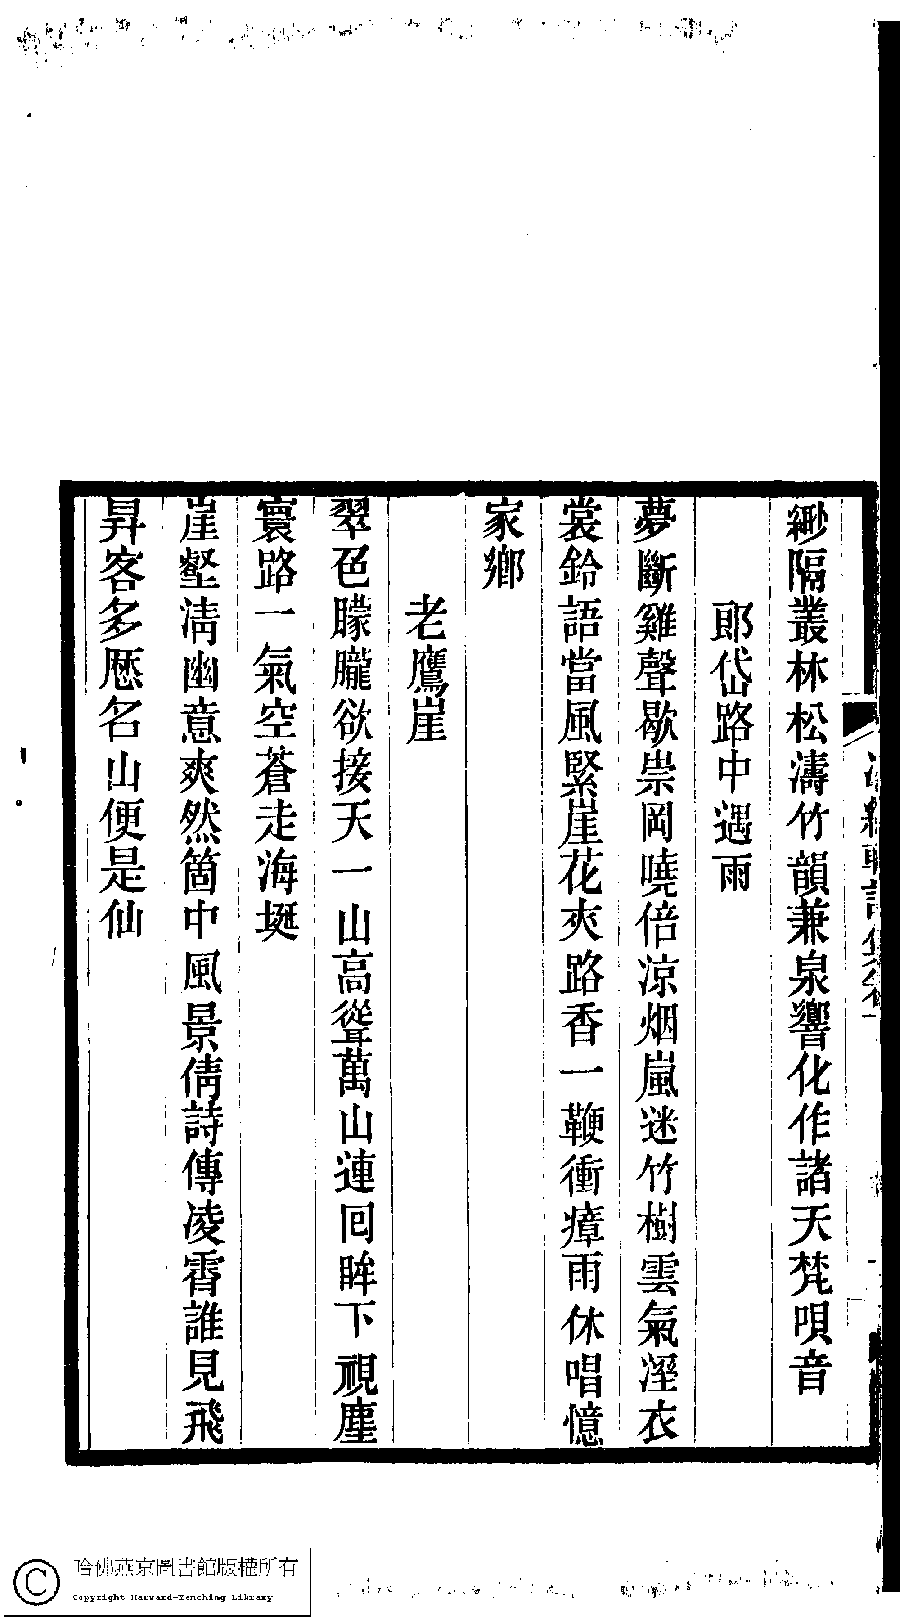 緲隔叢林松濤竹韻兼泉響化作諸天梵唄音
郎岱路中遇雨
夢斷雞聲歇崇岡曉倍凉烟嵐迷竹樹雲氣溼衣
裳鈴語當風緊崖花夾路香一鞭衝瘴雨休唱憶
家鄉
老鷹崖
翠色朦朧欲接天一山高聳萬山連回眸下視塵
寰路一氣空蒼走海堧
崖壑清幽意爽然箇中風景倩詩傳凌霄誰見飛
昇客多厯名山便是仙
哈佛燕京圖書館版權所有
Copyright Harvard-Yenching Library